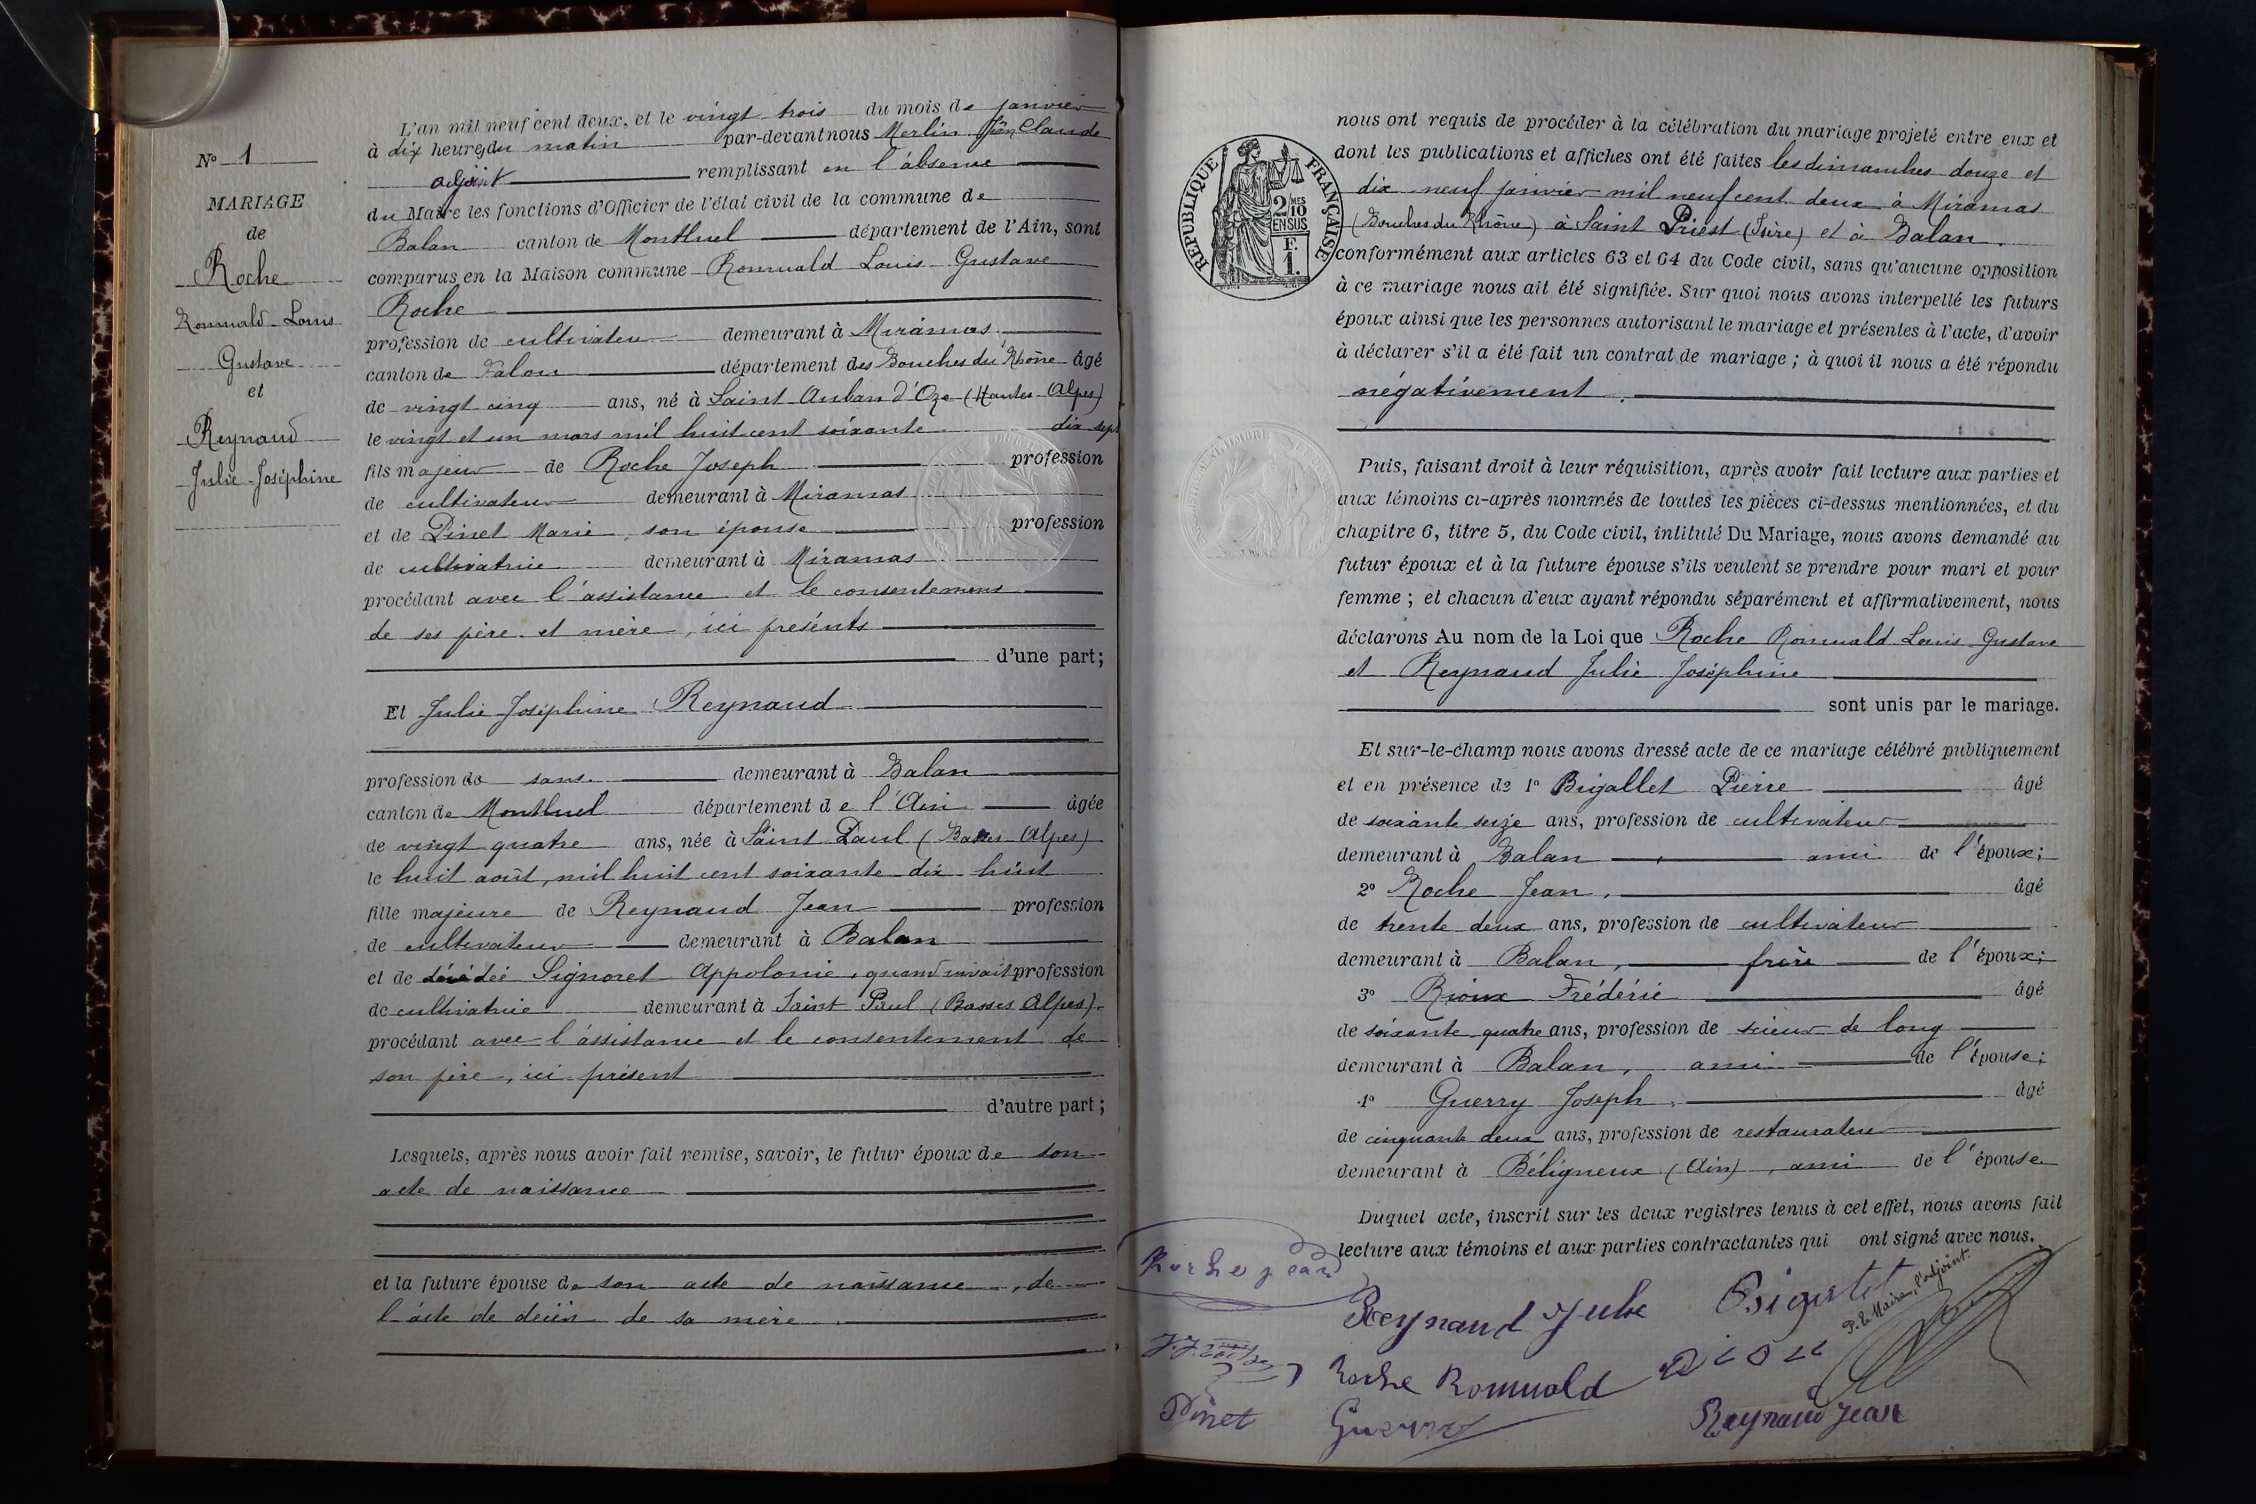 N° 1
MARIAGE
de
Roche
Romuald Louis
Gustave
et
Reynaud
Julie Joséphine
L'an mil neuf cent deux, et le vingt trois du mois de janvier
à dix heures du matin par-devant nous Merlin Jean Claude
adjoint remplissant en l'absence
du Maire les fonctions d'Officier de l'état civil de la commune de
Balan canton de Montluel département de l'Ain, sont
comparus en la Maison commune Romuald Louis Gustave
Roche
profession de cultivateur demeurant à Miramas
canton de Salon département des Bouches du Rhône âgé
de vingt cinq ans, né à Saint Auban d'Oze (Hautes Alpes)
le vingt et un mars mil huit cent soixante dix sept
fils majeur de Roche Joseph profession
de cultivateur demeurant à Miramas
et de Pinet Marie, son épouse profession
de cultivatrice demeurant à Miramas
procédant avec l'assistance et le consentement
de ses père et mère, ici présents
d'une part;
Et Julie Joséphine Reynaud
profession de sans demeurant à Balan
canton de Montluel département de l'Ain âgée
de vingt quatre ans, née à Saint Paul (Basses Alpes)
le huit août, mil huit cent soixante dix huit
fille majeure de Reynaud Jean profession
de cultivateur demeurant à Balan
et de décédée Signoret Appolonie, quand vivait profession
de cultivatrice demeurant à Saint Paul (Basses Alpes)
procédant avec l'assistance et le consentement de
son père, ici présent
d'autre part;
Lesquels, après nous avoir fait remise, savoir, le futur époux de son
acte de naissance
et la future épouse de son acte de naissance, de
l'acte de décès de sa mère.
REPUBLIQUE FRANÇAISE
2 MES 10 EN SUS
F. 1.
nous ont requis de procéder à la célébration du mariage projeté entre eux et
dont les publications et affiches ont été faites les dimanches douze et
dix neuf janvier mil neuf cent deux à Miramas
(Bouches du Rhône) à Saint Priest (Isère) et à Balan.
conformément aux articles 63 et 64 du Code civil, sans qu'aucune opposition
à ce mariage nous ait été signifiée. Sur quoi nous avons interpellé les futurs
époux ainsi que les personnes autorisant le mariage et présentes à l'acte, d'avoir
à déclarer s'il a été fait un contrat de mariage; à quoi il nous a été répondu
négativement.
Puis, faisant droit à leur réquisition, après avoir fait lecture aux parties et
aux témoins ci-après nommés de toutes les pièces ci-dessus mentionnées, et du
chapitre 6, titre 5, du Code civil, intitulé Du Mariage, nous avons demandé au
futur époux et à la future épouse s'ils veulent se prendre pour mari et pour
femme; et chacun d'eux ayant répondu séparément et affirmativement, nous
déclarons Au nom de la Loi que Roche Romuald Louis Gustave
et Reynaud Julie Joséphine
sont unis par le mariage.
Et sur-le-champ nous avons dressé acte de ce mariage célébré publiquement
et en présence de 1° Bigallet Pierre âgé
de soixante seize ans, profession de cultivateur
demeurant à Balan, ami de l'époux;
2° Roche Jean, âgé
de trente deux ans, profession de cultivateur
demeurant à Balan, frère de l'époux;
3° Rioux Frédéric âgé
de soixante quatre ans, profession de scieur de long
demeurant à Balan, ami de l'épouse;
4° Guerry Joseph, âgé
de cinquante deux ans, profession de restaurateur
demeurant à Béligneux (Ain), ami de l'épouse
Duquel acte, inscrit sur les deux registres tenus à cet effet, nous avons fait
lecture aux témoins et aux parties contractantes qui ont signé avec nous.
Roche jean
Reynaud Julie
P. le Maire, l'adjoint.
Roche Romuald
Pinet
Guerry
Reynaud Jean